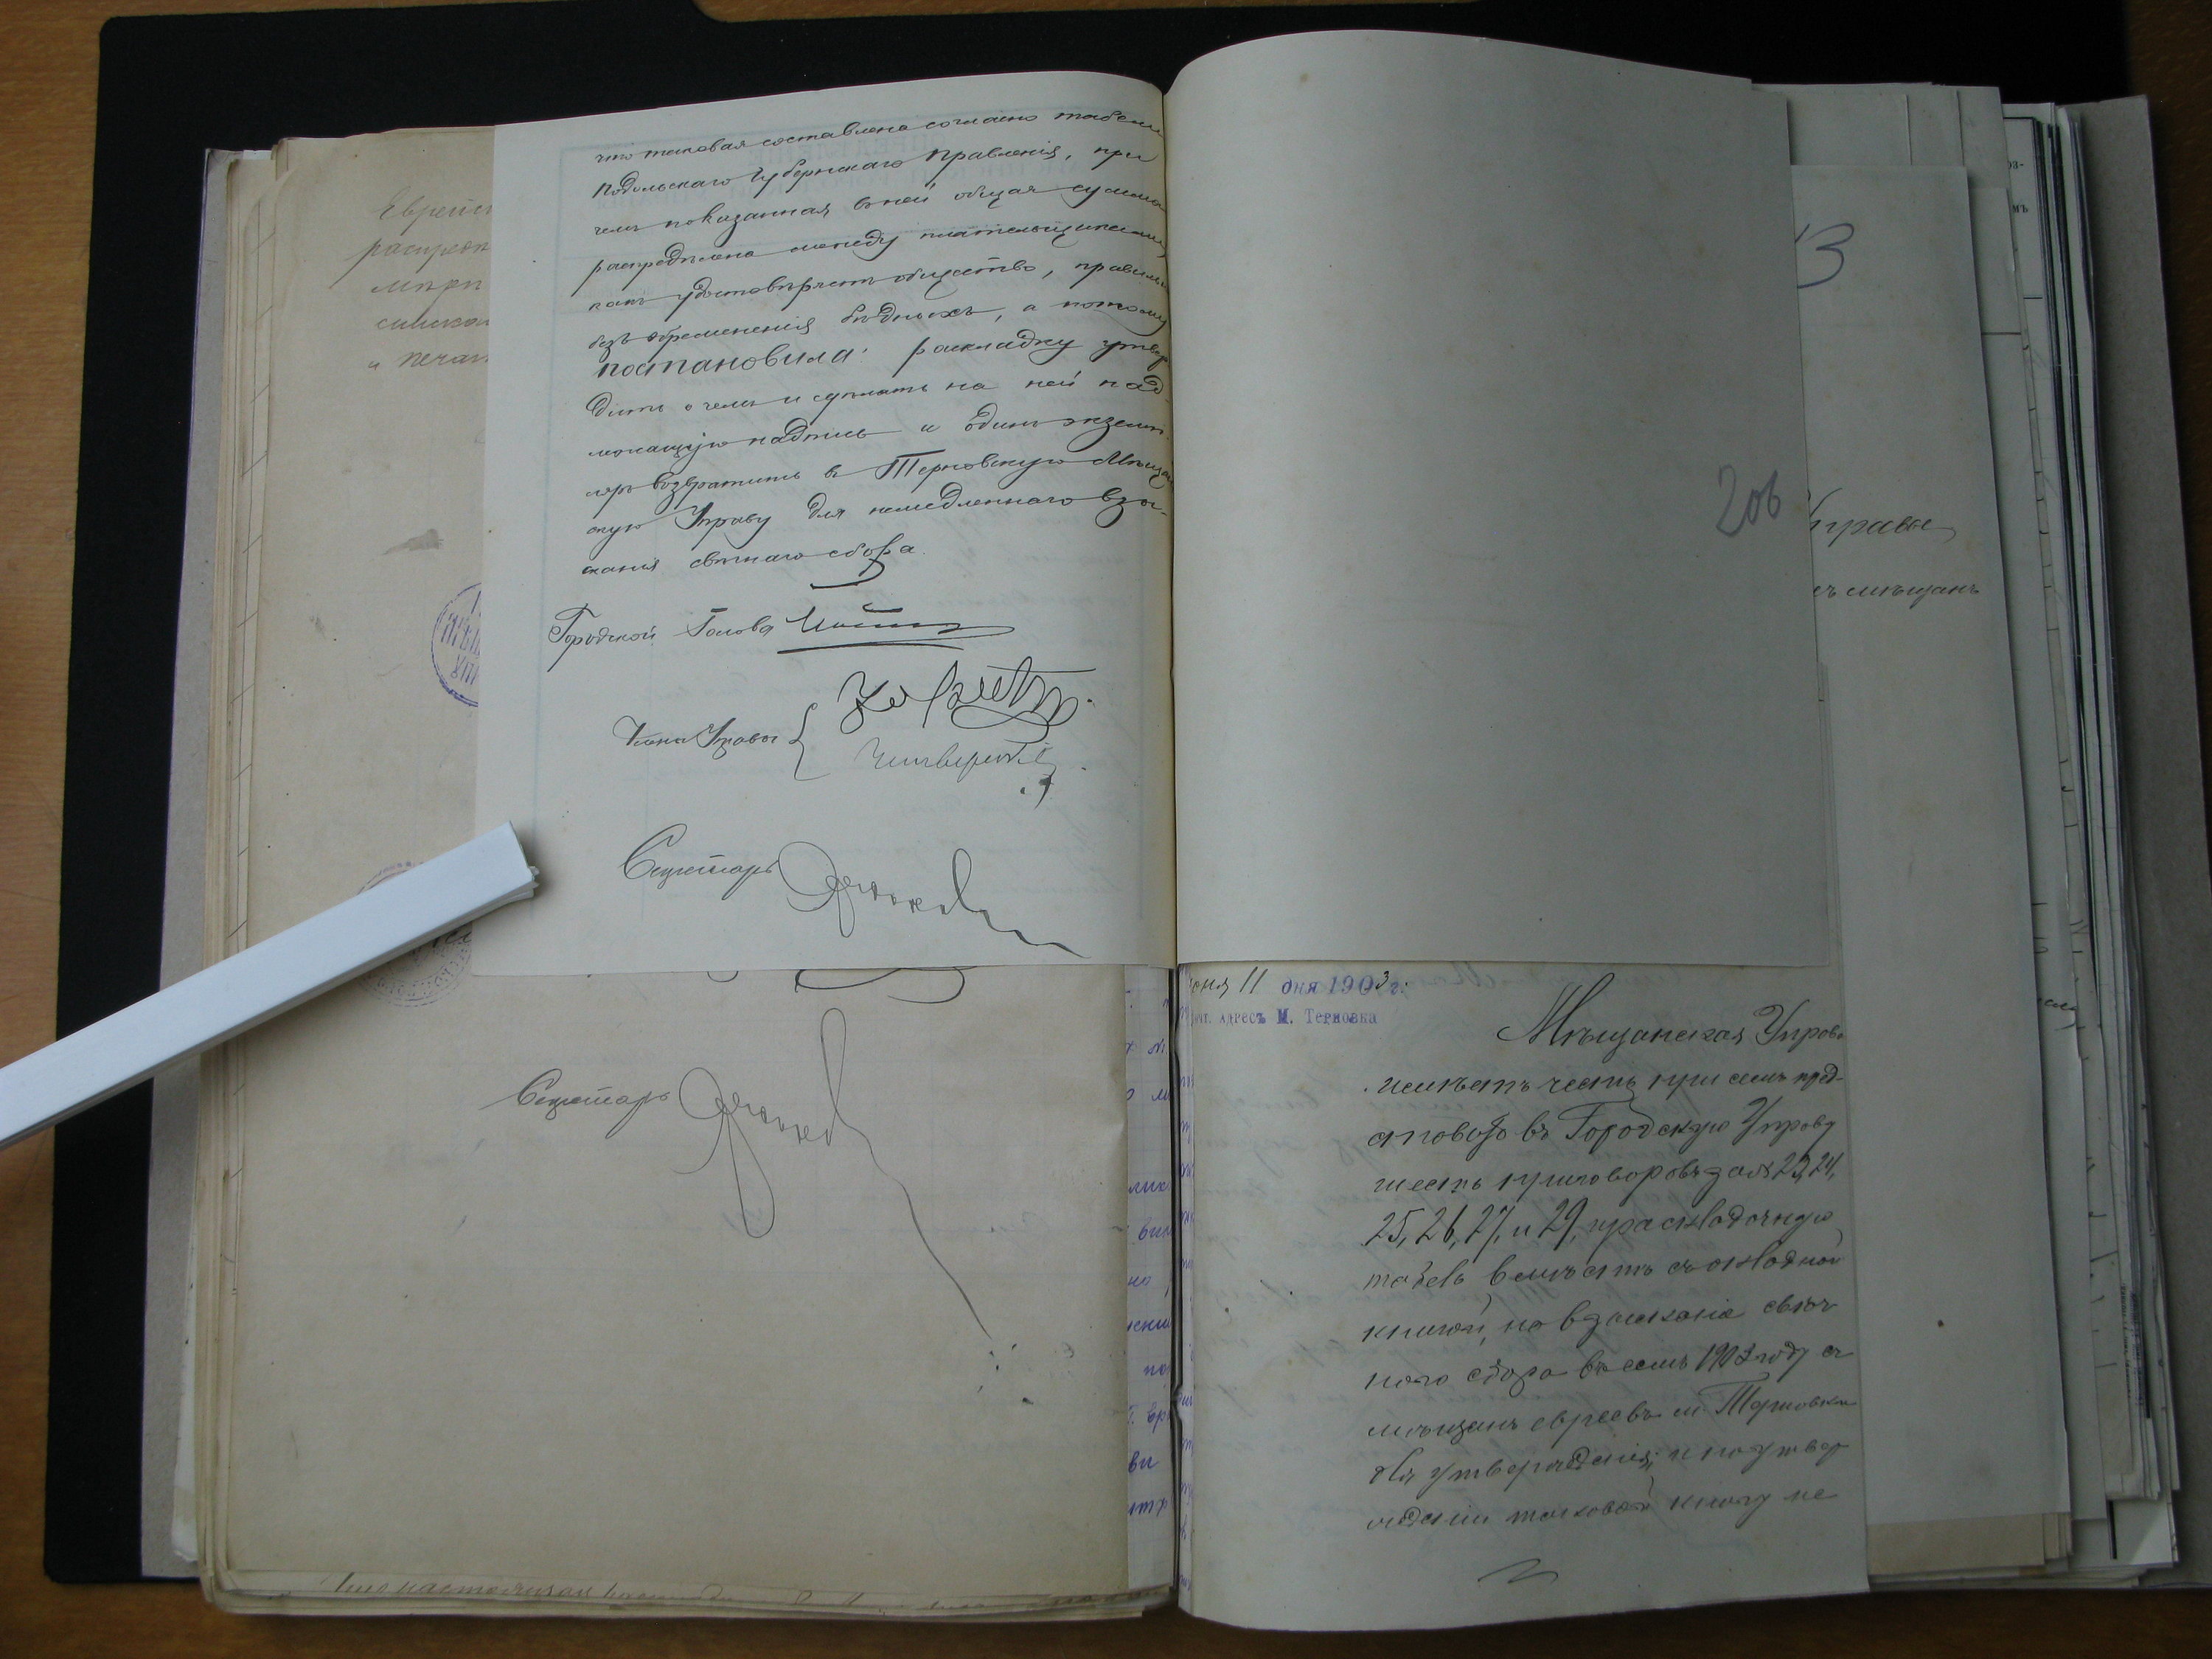 что таковая составлена согласно табели
Подольскаго Губернскаго Правленія, при
чемъ показанная въ ней общая сумма
распредѣлена между плательщиками,
какъ удостовѣряетъ общество, правильно
безъ обремененія бѣдныхъ, а потому
постановила: раскладку утвер
дить о чемъ и сдѣлать на ней над-
лежащую надпись и одинъ экземп-
ляръ возвратить въ Терновскую Мѣщан
скую Управу для немедленнаго взы-
сканія свѣчнаго сбора.
Городской Голова
Члены Управы
Секретарь
Секретарь
Еврейск
распред
и печат
206
13
Управы
мѣщанъ
юня 11 дня 1903 г.
Адресъ М. Терновка
Мѣщанская Управа
имѣетъ честь при семъ пред-
ставить въ Городскую Управу
шесть приговоровъ за № 23, 24,
25, 26, 27, и 29, и раскладочную
табель вмѣстѣ съ окладной
книгой, на взысканіе свѣч
наго сбора въ семъ 1903 году съ
мѣщанъ евреевъ м. Терновки
для утвержденія; и по утвер
жденіи таковой книгу не